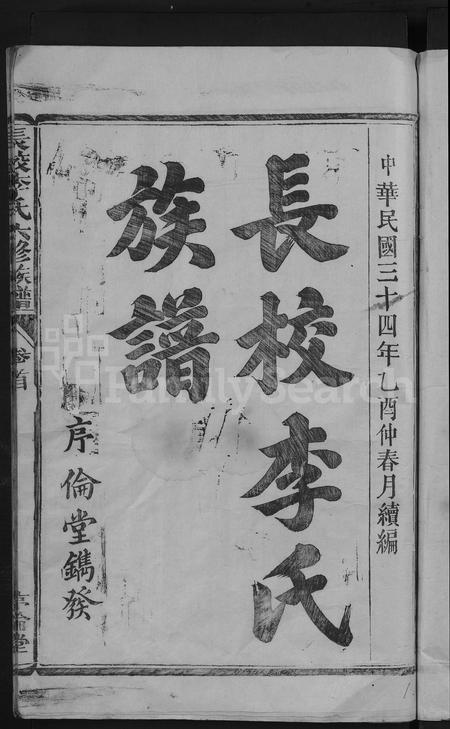 中華民國三十四年乙酉仲春月續編
長校李氏
族譜
序倫堂鐫發
長校李氏六修族譜
卷首
序倫堂
FamilySearch